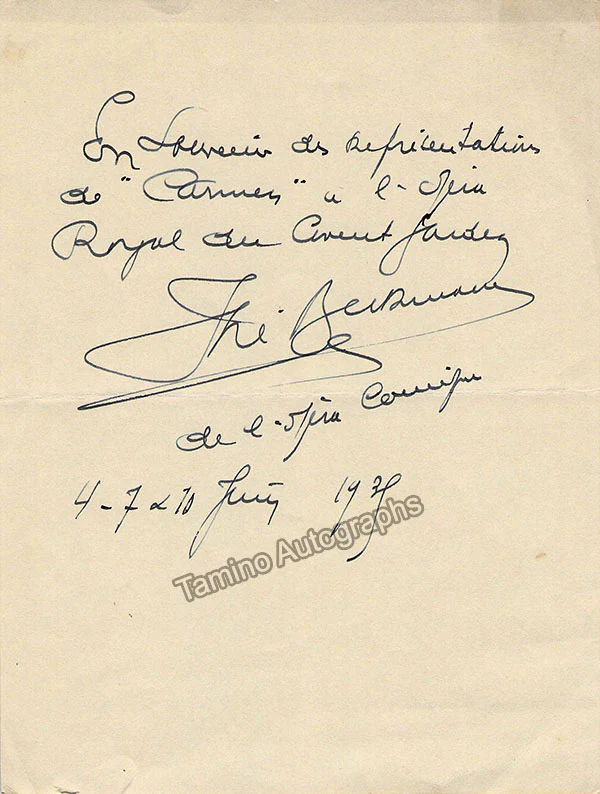 En Souvenir des représentations
de "Carmen" a l-opéra
Royal du Covent Garden
Thé Beckmans
de l-opéra Comique
4-7 & 10 Juin 1935
Tamino Autographs